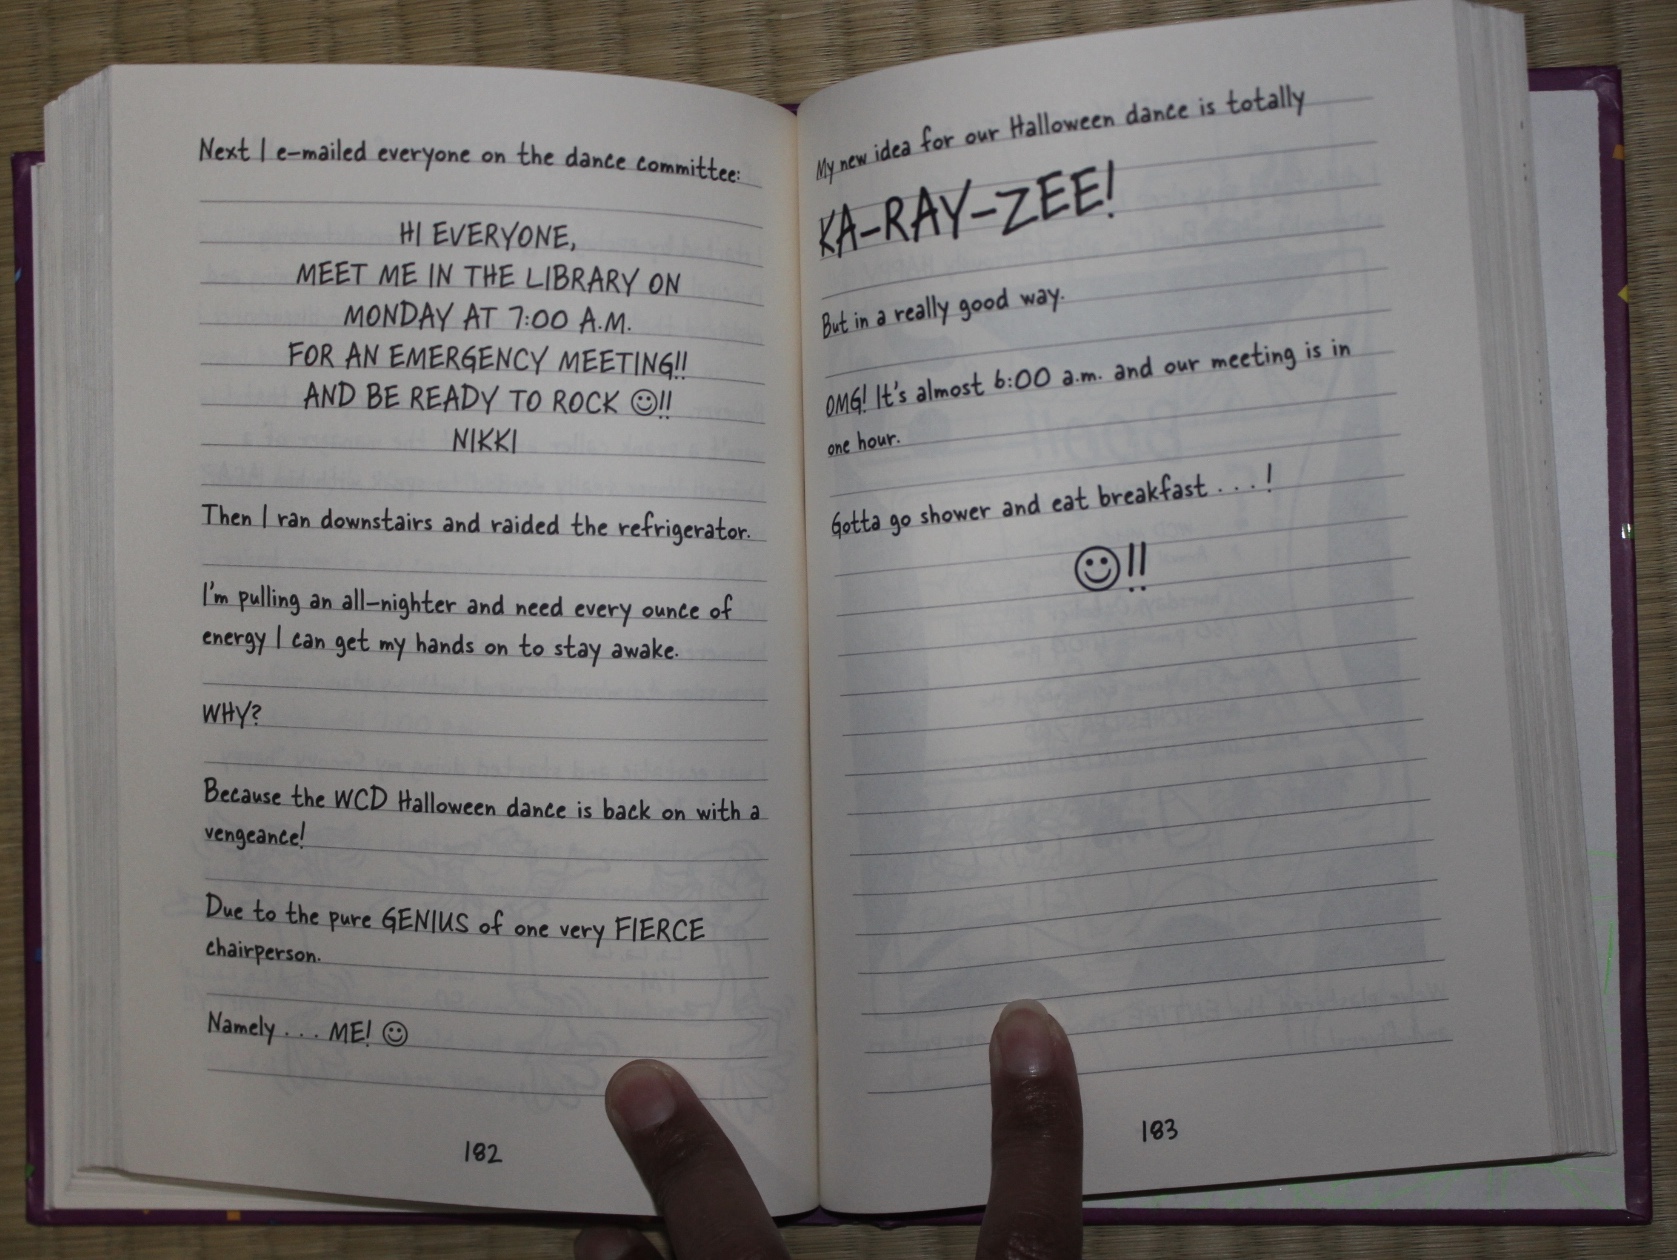 Next I e-mailed everyone on the dance committee:
HI EVERYONE,
MEET ME IN THE LIBRARY ON
MONDAY AT 7:00 A.M.
FOR AN EMERGENCY MEETING!!
AND BE READY TO ROCK ☺!!
NIKKI
Then I ran downstairs and raided the refrigerator.
I'm pulling an all-nighter and need every ounce of
energy I can get my hands on to stay awake.
WHY?
Because the WCD Halloween dance is back on with a
vengeance!
Due to the pure GENIUS of one very FIERCE
chairperson.
Namely . . . ME! ☺
182
My new idea for our Halloween dance is totally
KA-RAY-ZEE!
But in a really good way.
OMG! It's almost 6:00 a.m. and our meeting is in
one hour.
Gotta go shower and eat breakfast . . . !
☺!!
183